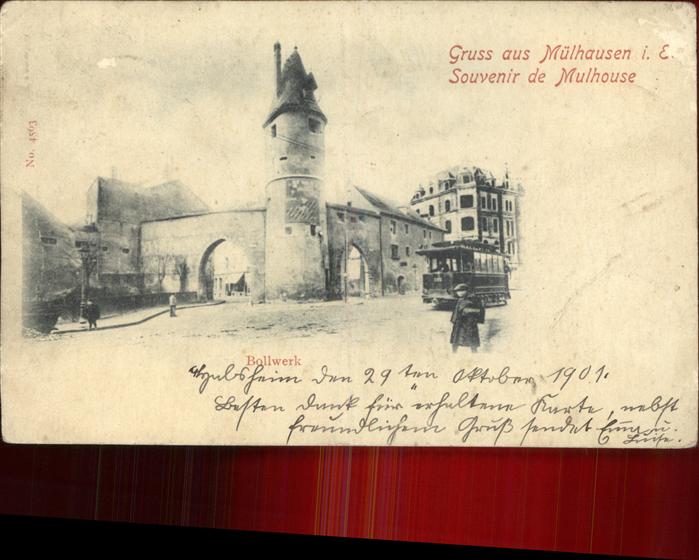 Gruss aus Mülhausen i. E.
Souvenir de Mulhouse
No. 4563
Bollwerk
den 29ten Oktober 1901.
Besten Dank für erhaltene Karte, nebst
freundlichem Gruß sendet Emma u.
Luise.